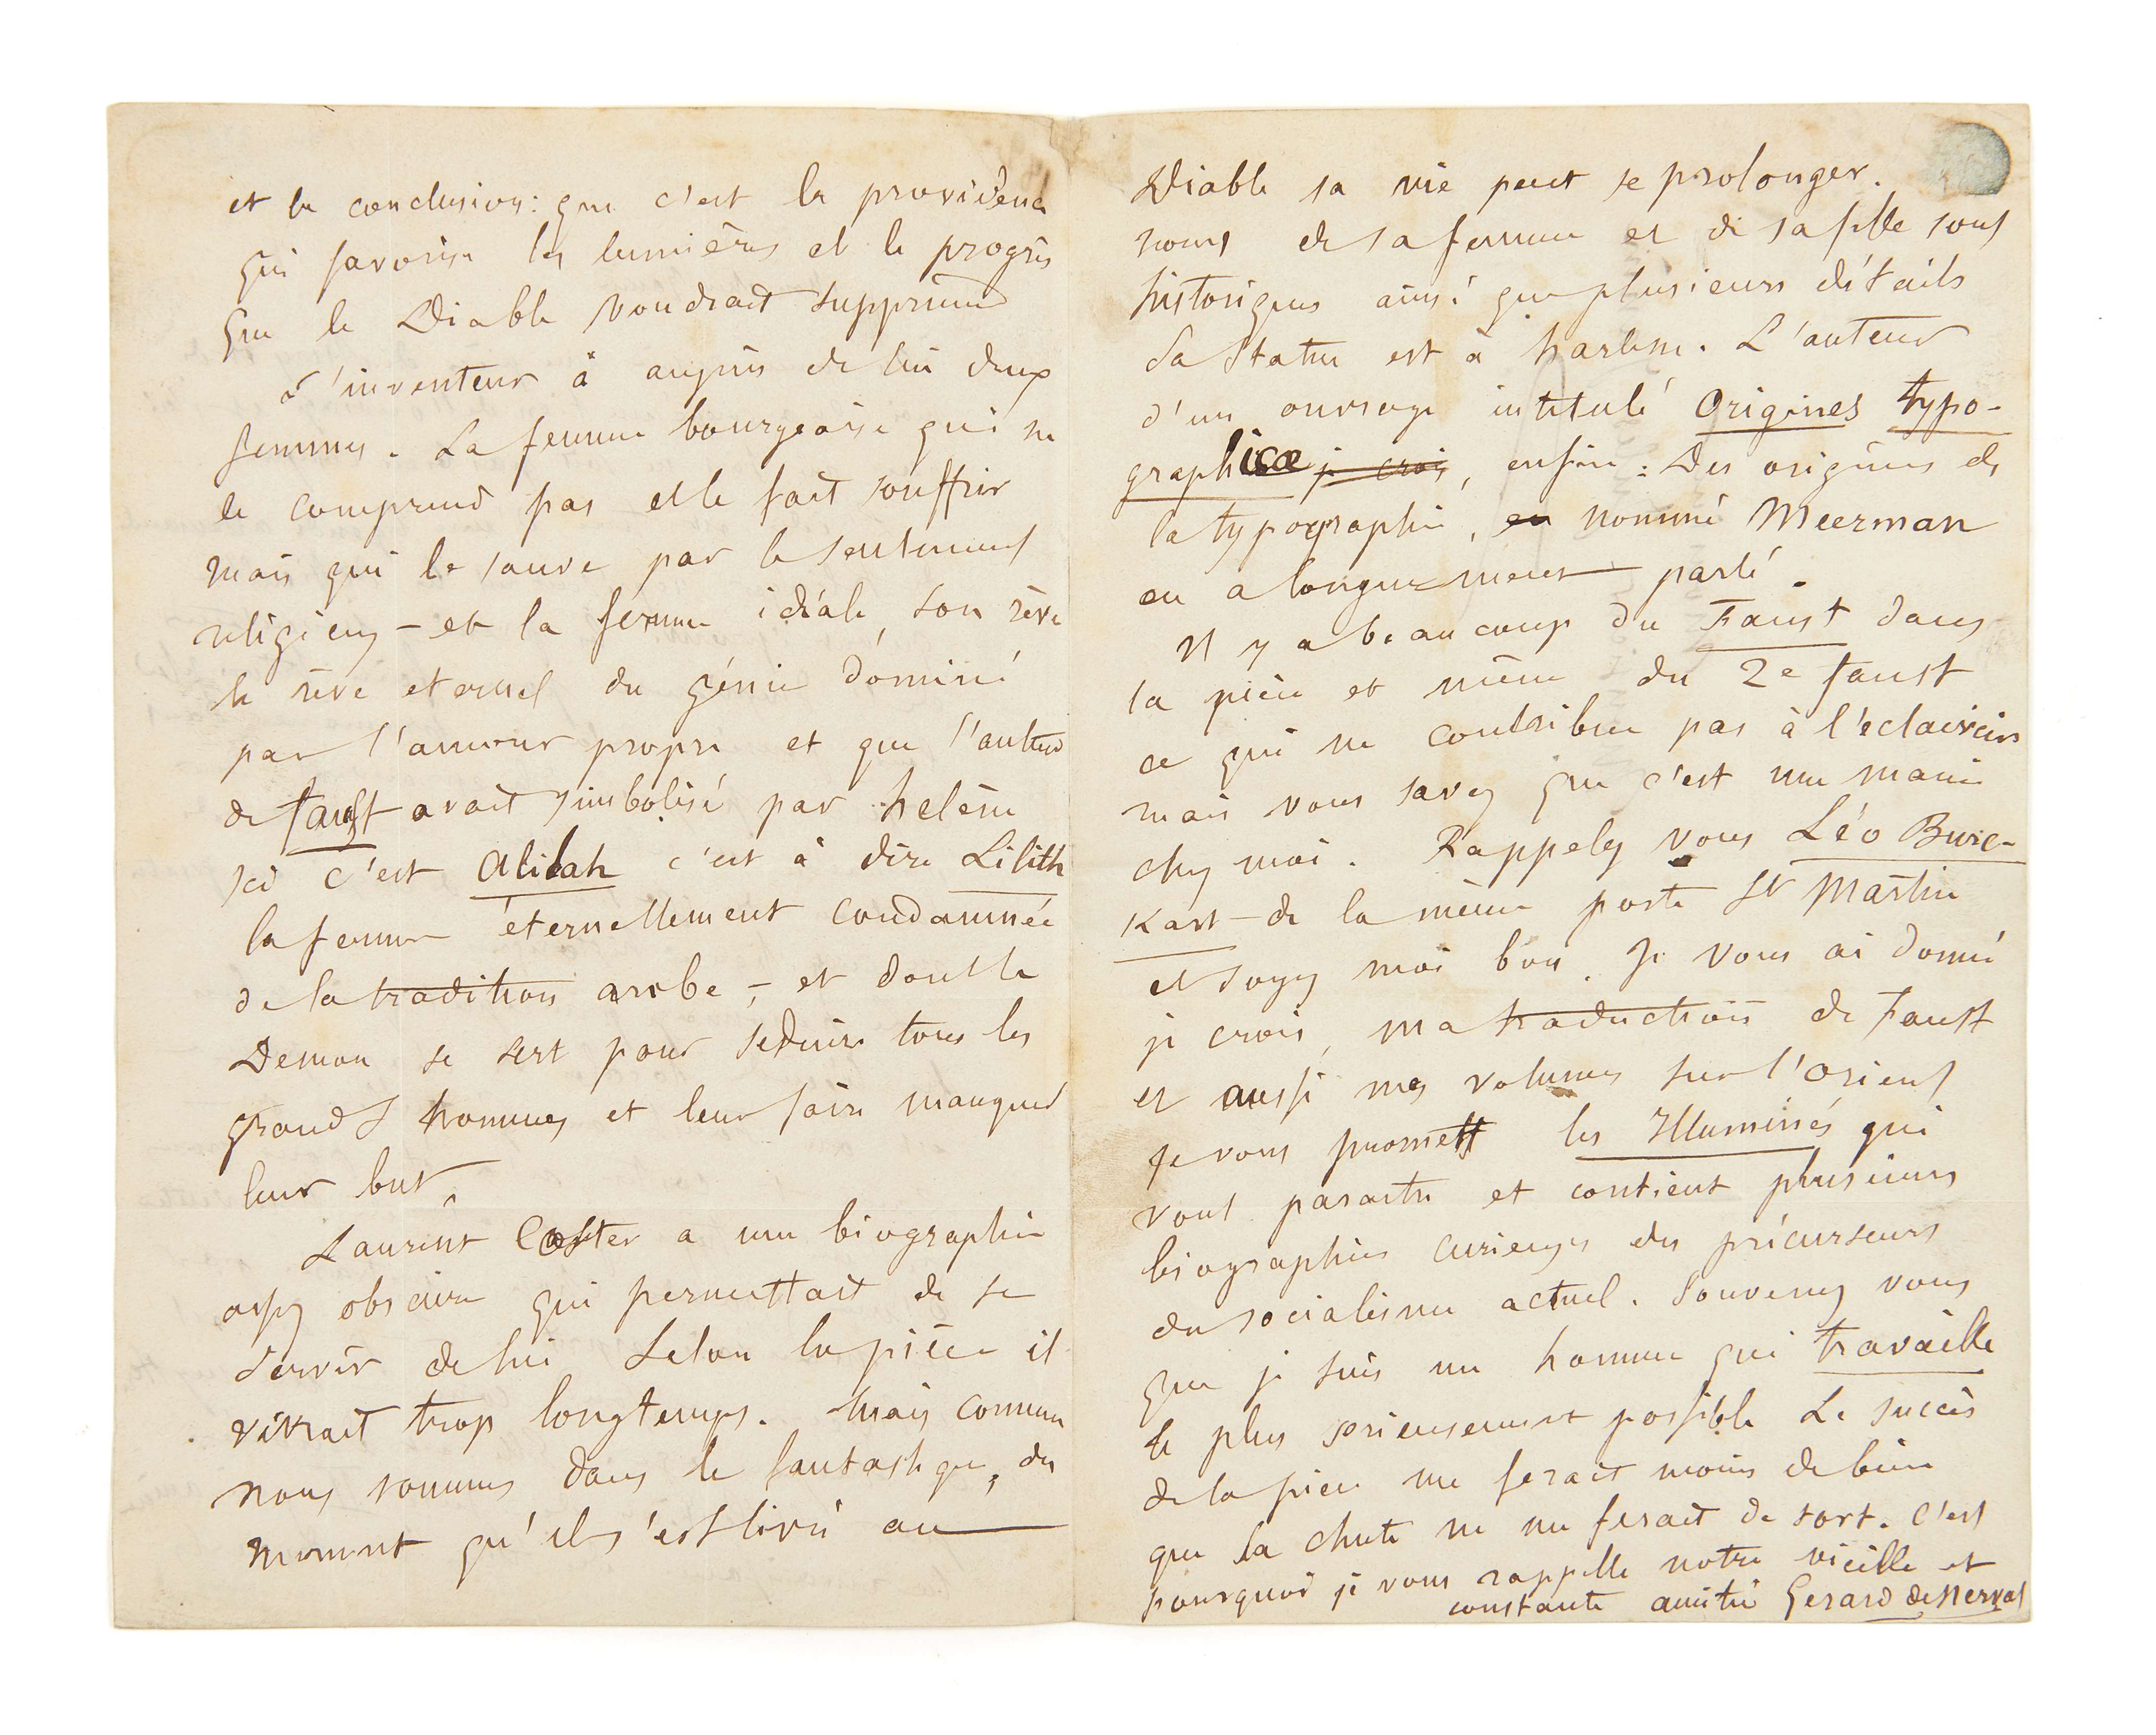 et la conclusion : que c'est la providence
qui favorise les lumières et le progrès
que le Diable voudrait supprimer
L'inventeur à auprès de lui deux
femmes. La femme bourgeoise qui ne
le comprend pas et le fait souffrir
mais qui le sauve par le sentiment
religieux – et la femme idéale, son rève
le rève eternel du génie dominé
par l'amour propre et que l'auteur
de faust avait simbolisé par helène
Ici c'est Alilah c'est à dire Lilith
la femme éternellement condamnée
de la tradition arabe, – et dont le
Demon se sert pour séduire tous les
grands hommes et leur faire manquer
leur but.
Laurent Coster a une biographie
assez obscure qui permettait de se
servir de lui Selon la pièce il
vivrait trop longtemps. Mais comme
nous sommes dans le fantastique, du
moment qu'il s'est livré au
Diable sa vie peut se prolonger.
noms de sa femme et de sa fille sont
historiques ainsi que plusieurs détails
Sa Statue est à harlem. L'auteur
d'un ouvrage intitulé Origines typo-
graphicæ je crois, enfin : Des origines de
la typographie, en nommé Meerman
en a longuement parlé.
Il y a beaucoup du Faust dans
la pièce et même du 2e faust
ce qui ne contribue pas à l'eclaircir
mais vous savez que c'est une manie
chez moi. Rappelez vous Léo Burc-
kart – de la même porte St Martin
et soyez moi bon. Je vous ai donné
je crois, ma traduction de Faust
et aussi mes volumes sur l'orient
Je vous promets les Illuminés qui
vont paraitre et contient plusieurs
biographies curieuses des précurseurs
du socialisme actuel. Souvenez vous
que je suis un homme qui travaille
le plus sérieusement possible Le succès
de la pièce me ferait moins de bien
que la chute ne me ferait de tort. C'est
pourquoi je vous rappelle notre vieille et
constante amitié Gerard de Nerval